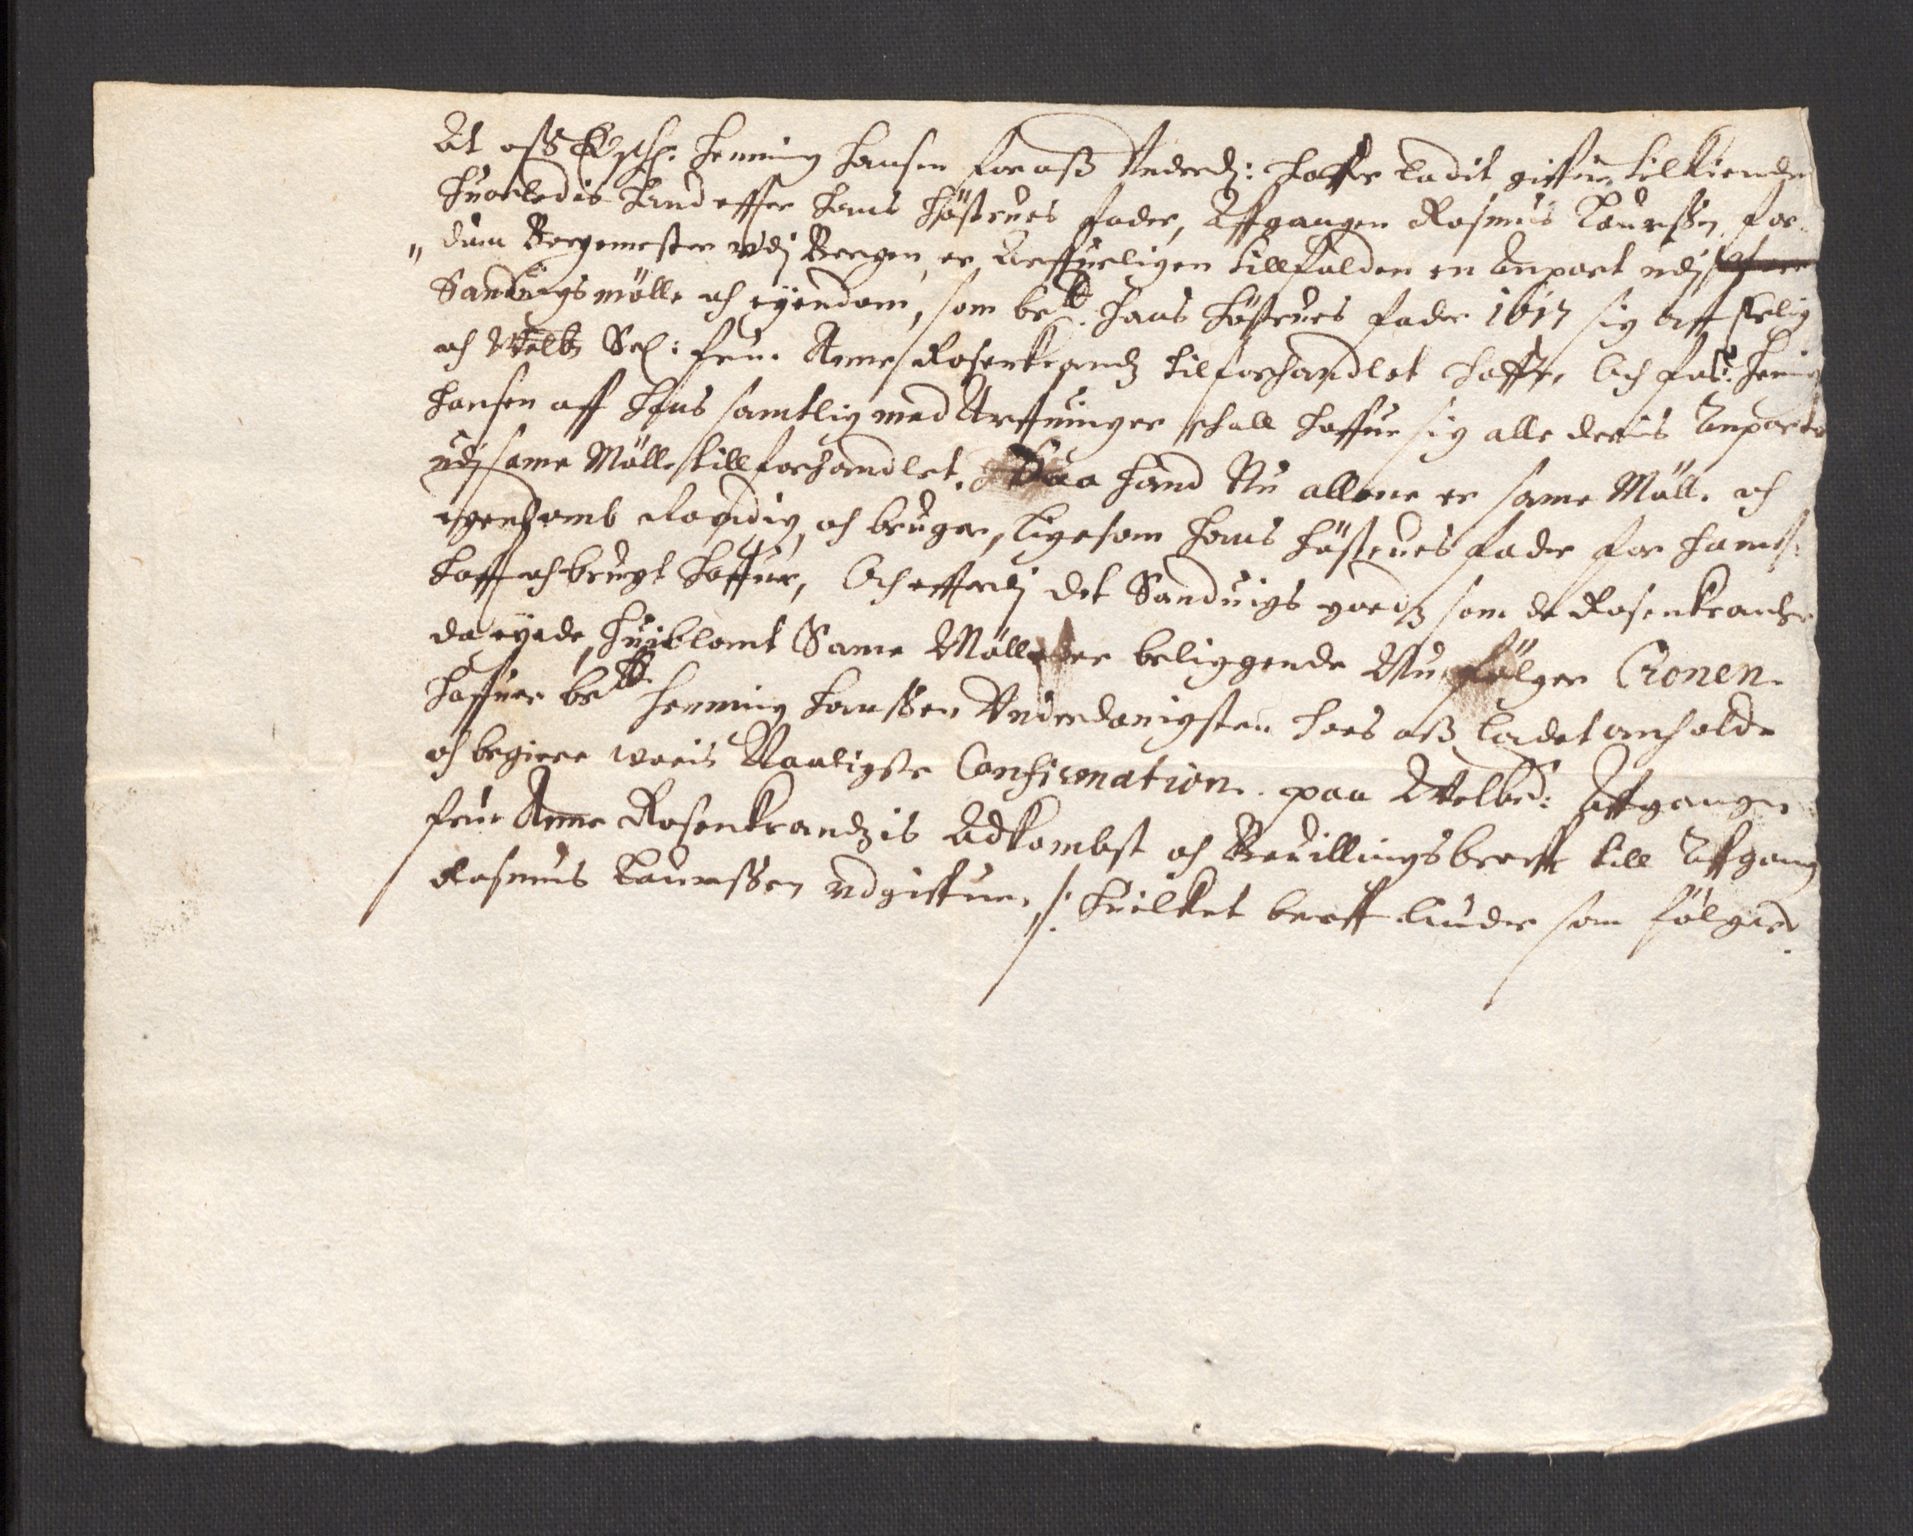 At oss Elsch: Henning Hansen for oss Underd: haffr ladit giffue tilkiende
huorledis hand effter hans höstrues fader, Affgangen Rasmus Laurssen for-
" dum Borgemester vdj Bergen, er Arffueligen tillfalden en Anpart udj
Sanduigs mölle och eÿendom, som bete. hans höstrues fader 1617 sig aff erlig
och Welb: Sal: frue Anne Rosenkrandz tilforhandlet haffr, Och for: Hening
Hansen aff hans samtlig med Arffuinger schall haffue sig alle deris Anparte
udj same Mölle tillforhandlet. Saa hand Nu allene er same Mölle och
egendomb Raadig, och bruger, ligesom hans höstrues fader for hannem
hafft och brugt haffuer, Och effterdj det Sanduigs goedz som de Rosenkrantzer
da eÿede, huiblant Same Mölle er beliggende Nu følger Cronen.
Haffuer bete Henning Hanssen Underdanigsten hoes oss ladet anholde
och begiere woris Naadigste Confirmation. paa Welbr: Affgangne
frue Anne Rosenkrandzis Adkombst och Beuillingsbreff till Affgang
Rasmus Laurssen udgiffuen ./: huilket breff liuder som følger.